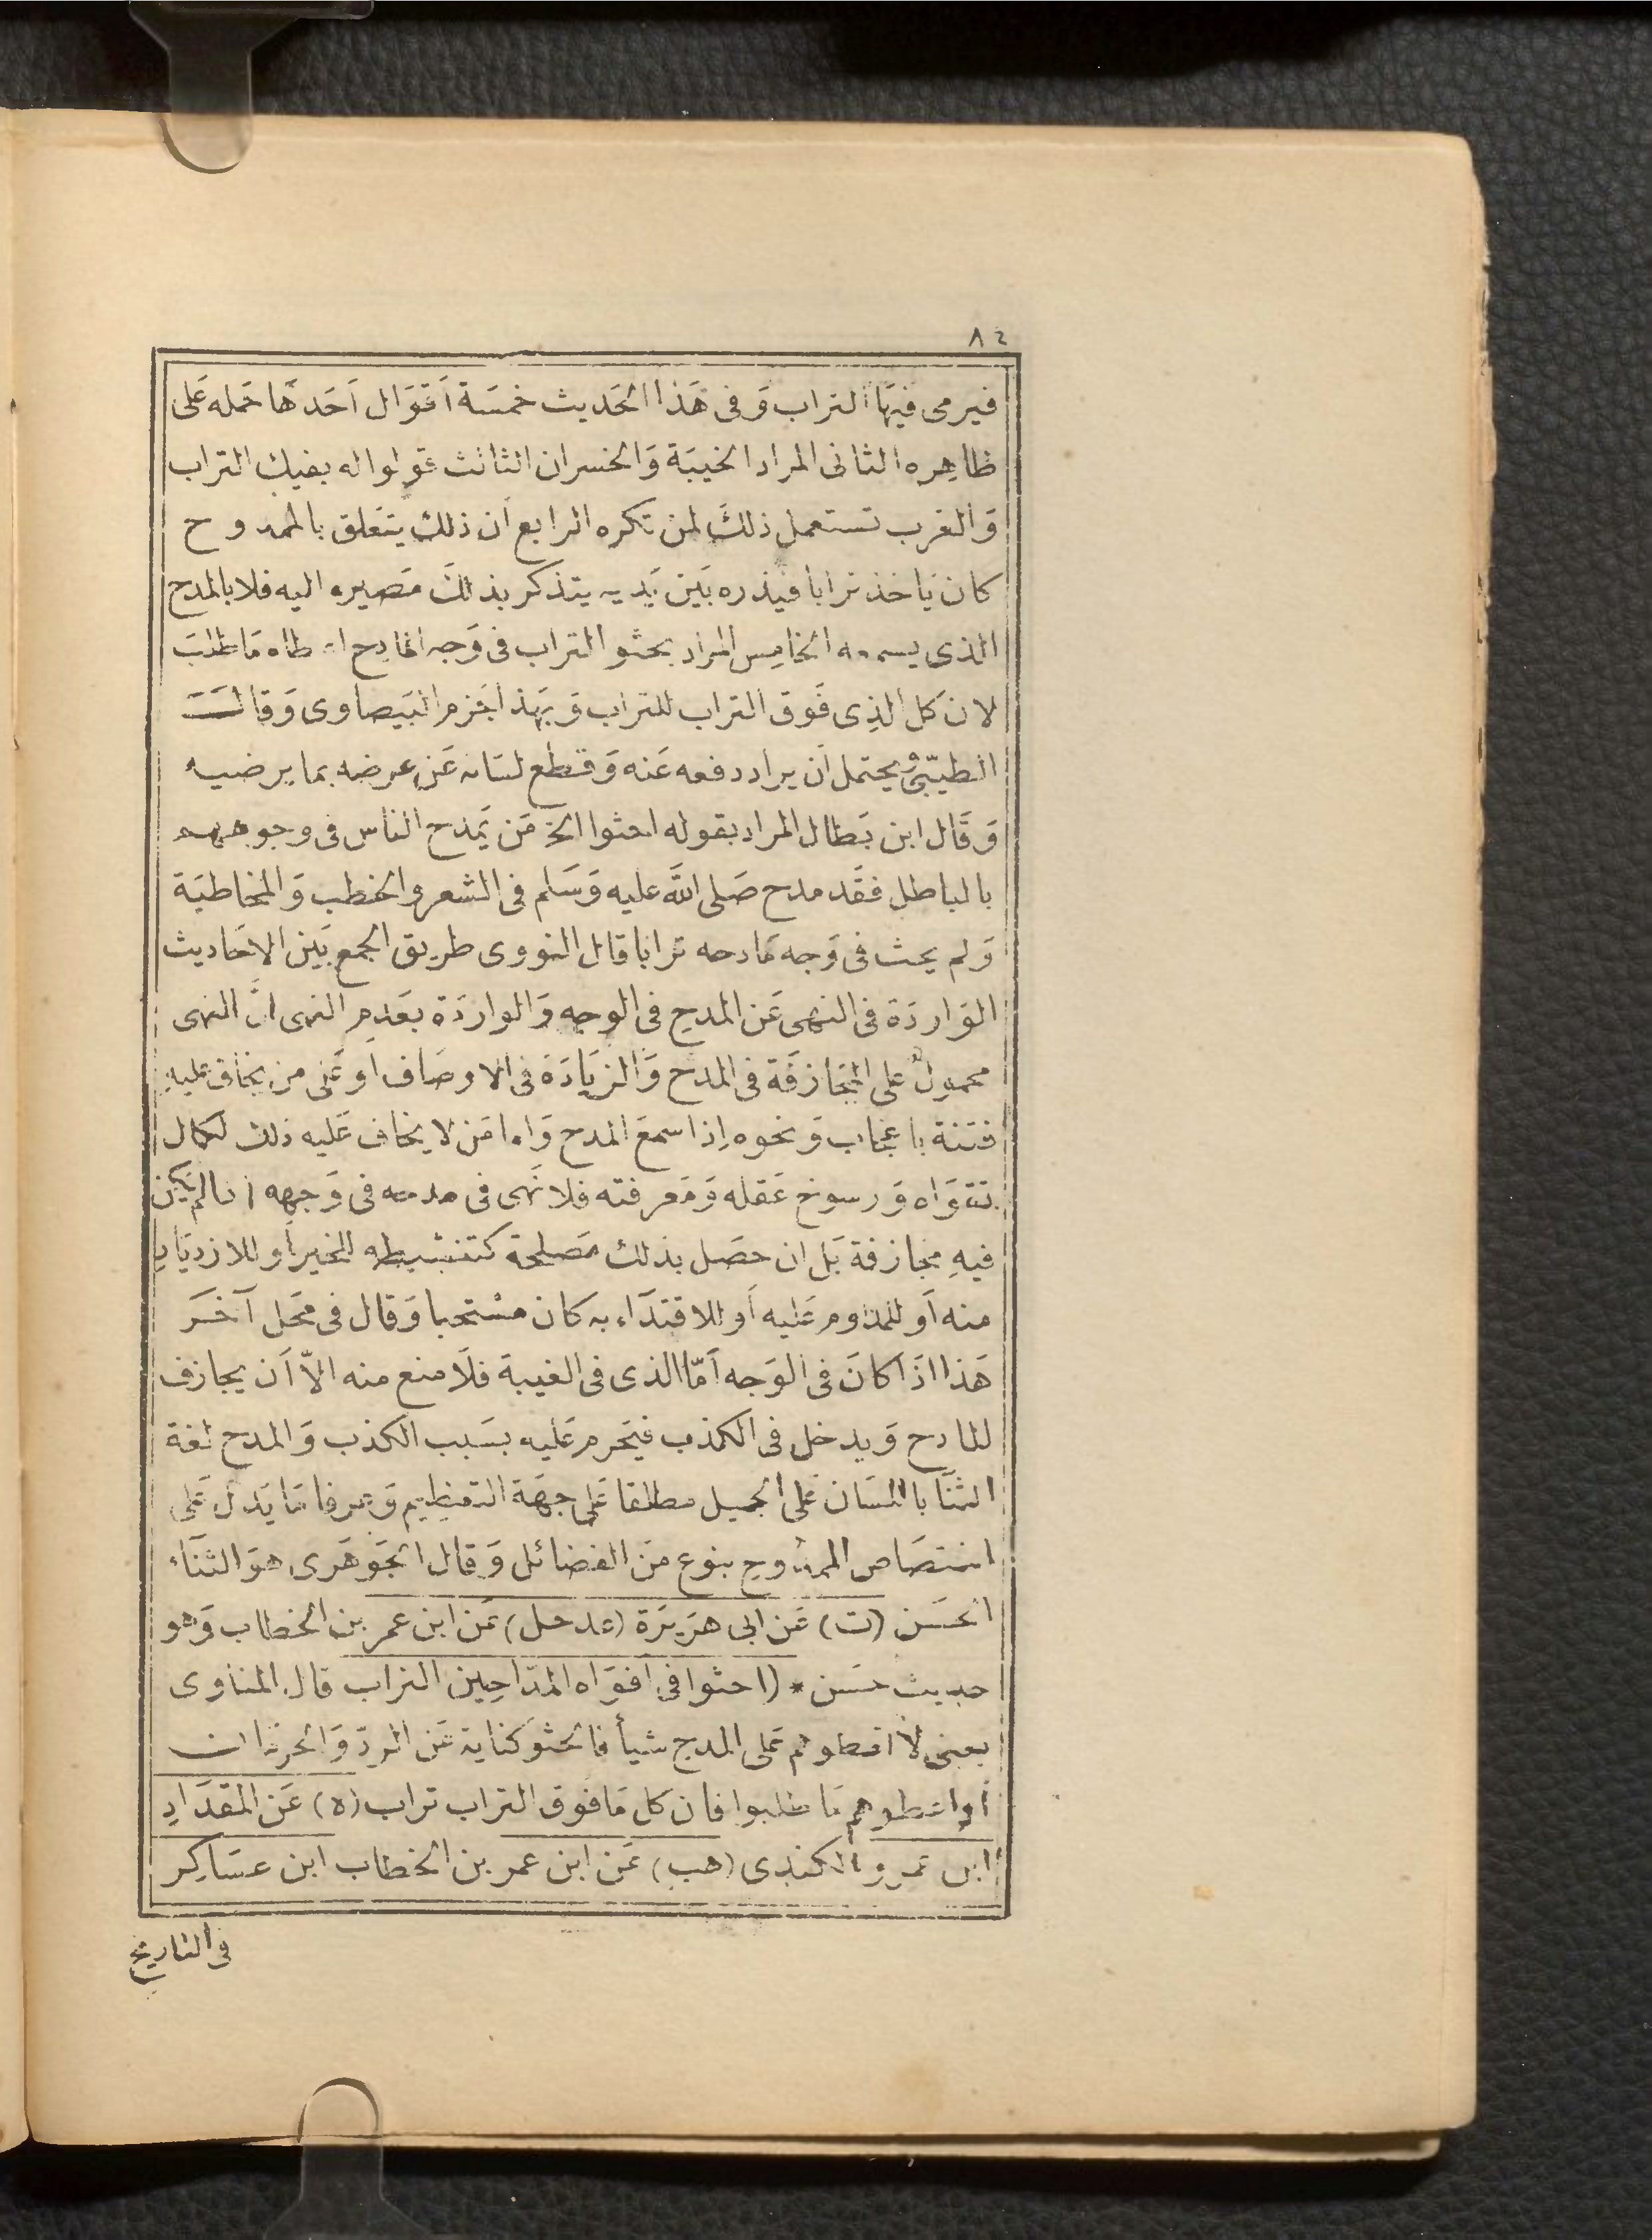 ٨٤
فيرمى فيهَا التراب وَفى هَذا الحَديث خمسَة اَقوَال اَحَدهَا حَمله عَلى
ظاهِره الثانى المراد الخيبَة وَالخسران الثالث قولوا له بفيك التراب
وَالعَرب تستعمل ذلكَ لمن تكره الرابع اَن ذلك يتعَلق بالممدوح
كان يَاخذ ترابا فيذره بَين يَديه يتذكر بذلكَ مَصيره اليه فلا بالمدح
الذى يسمعه الخامِس المراد بحثو التراب فى وَجه المادِح اعطاه مَا طلبَ
لان كل الذِى فَوق التراب للتراب وَبهَذا جَزم البَيضاوى وَقالَـــ
الطيبىّ وُيحتمل اَن يراد دفعه عَنه وَقطع لسَانه عَن عرضه بما يرضيه
وَقَال ابن بَطال المراد بقوله احثوا الخ مَن يَمدَح الناس فى وجوههم
بالباطل فقَد مدح صَلى اللهَّ عليه وَسَلم فى الشعر وَالخطب وَالمخاطبَة
وَلم يحث فى وَجه مَادحه ترابا قال النووى طريق الجمع بَين الاحَاديث
الوَاردَة فى النهى عَن المدح فى الوجه وَالواردَة بعَدم النهى انَّ النهى
محمولٌ على المجَازفَة فى المدح وَالزيَادَة فى الاوصَاف اَو عَلى من يخاف عليهِ
فتنة باعجَاب وَنحوه اِذا سمعَ المدح وَاما مَن لا يخاف عَليه ذلك لكمال
تقوَاه وَرسوخ عَقله وَمَعرفته فلا نَهى فى مدحه فى وَجهه اذا لم يَكن
فيهِ مجازفة بَل ان حصَل بذلك مَصلحة كتنشيطه للخير اَو للازديَاد
منه اَو للمدَاومة عَليه اَو للاقتدَاء به كان مستحبا وَقال فى محَل آخَـر
هَذا اذَا كانَ فى الوَجه اَمّا الذى فى الغيبة فلَا منع منه الّا اَن يجازف
المادح وَيدخل فى الكذب فيَحرم عَليه بسَبب الكذب وَالمدح لغة
الثنَا باللسَان عَلى الجميل مطلقا عَلى جهَة التعَظيم وَعرفا مَا يَدل عَلى
اختصَاص الممدُوح بنوع مَن الفضائل وَقال الجَوهَرى هوَ الثنَاء
الحسَن (ت) عَن ابى هرَيرَة (عد حل) عَن ابن عمر بن الخطاب وَهو
حديث حسَن * (احثوا فى افوَاه المدّاحِين التراب قال المناوى
يعنى لا اتعطوهم عَلى المدح شيأ فالحثو كناية عَن الردّ وَالحرمَان
اَو اعطوهم مَا طلبوا فان كل مَا فوق التراب تراب (ه) عَن المقدَادِ
ابن عَمرو الكندى (هب) عَن ابن عمر بن الخطاب ابن عسَاكِر
فى التاريخ